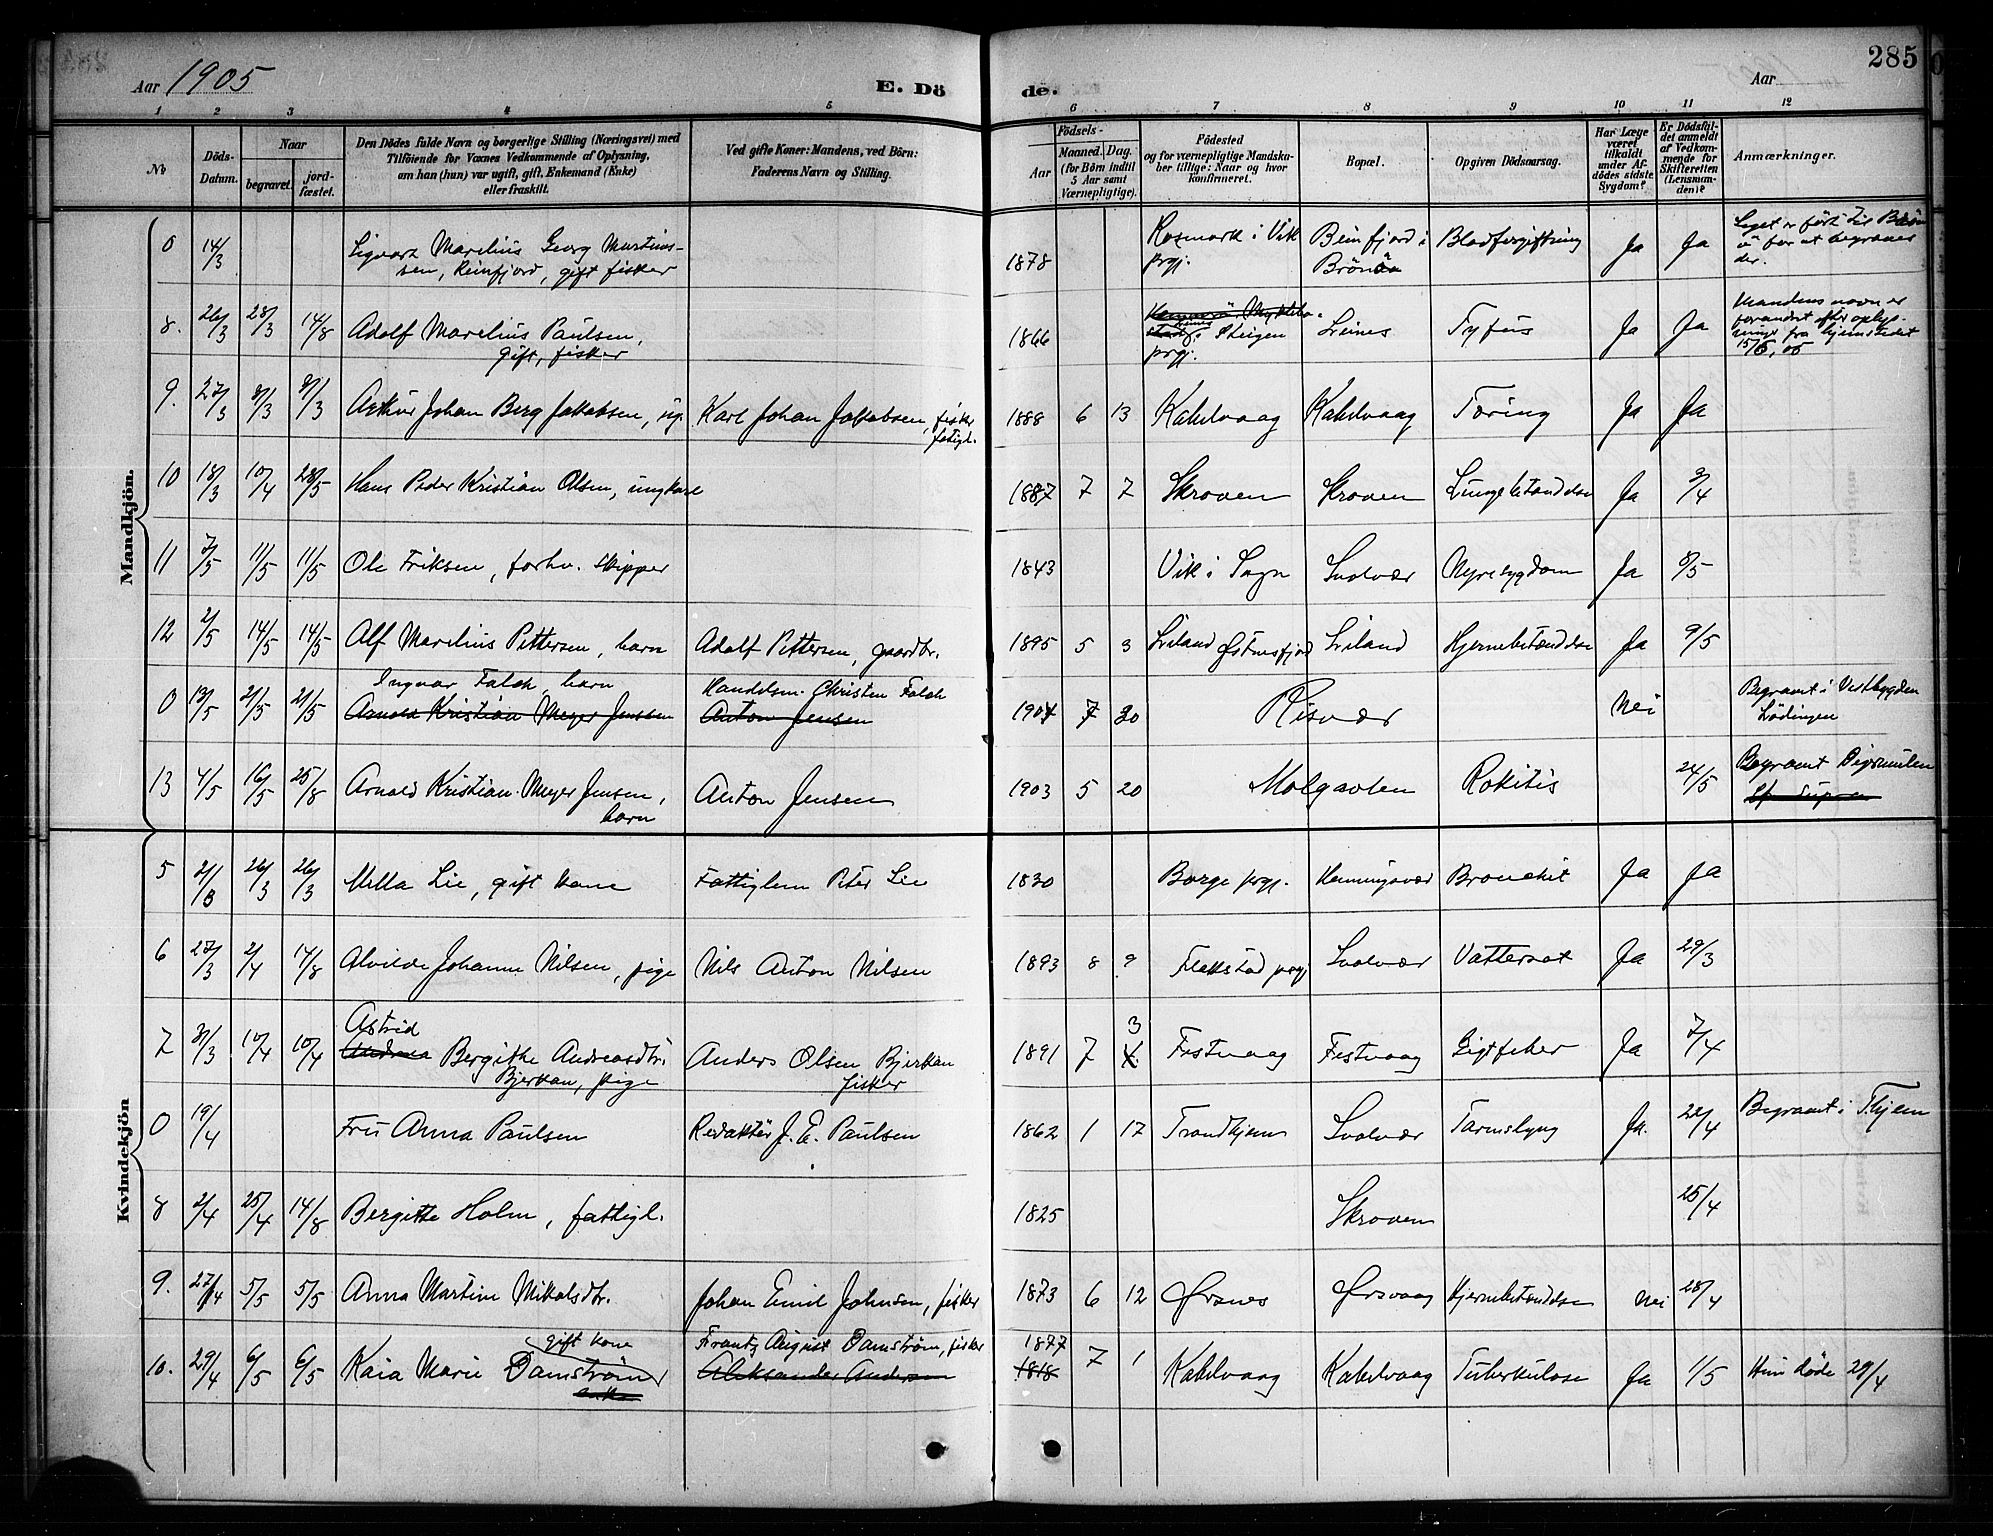 Aar 1905
E. Dö
de.
Aar
285
1 2 3 4 5 6 7 8 9 10 11 12
No
Döds-Datum.
Naar
begravet.
jord-fæstet.
Den Dödes fulde Navn og borgerlige Stilling (Næringsvei) med
Tilföiende for Voxnes Vedkommende af Oplysning,
om han (hun) var ugift, gift, Enkemand (Enke)
eller fraskilt.
Ved gifte Koner: Mandens, ved Börn:
Faderens Navn og Stilling.
Födsels-
Aar
Maaned. Dag.
(for Börn indtil
5 Aar samt
Værnepligtige).
Födested
og for værnepligtige Mandska-
ber tillige: Naar og hvor
konfirmeret.
Bopæl.
Opgiven Dödsaarsag.
Har Læge
været
tilkaldt
under Af-
dödes sidste
Sygdom?
Er Dödsfal-
det anmeldt
af Vedkom-
mende for
Skifteretten
(Lensman-
den)?
Anmærkninger.
Mandkjön.
0 14/3 Sigvart Marelius Georg Martins-
sen, Reinfjord, gift fisker
1878 Rosmork i Vik prgj. Reinfjord i Brönö Blodforgiftning Ja Ja Liget er ført til Brönö for at begraves der.
8. 26/3 28/3 14/8 Adolf Marelius Paulsen,
gift, fisker
1866 Leines Steigen prgj. Leines Tyfus Ja Ja Mandens navn er forandret efter oplysninger fra hjemstedet 15/6, 05
9. 27/3 31/3 31/3 Arthur Johan Berg Jakobsen, ug. Karl Johan Jakobsen, fisker
fatigl.
1888 6 13 Kabelvaag Kabelvaag Tæring Ja Ja
10 18/3 10/4 28/5 Hans Peder Kristian Olsen, ungkarl 1887 7 7 Skroven Skroven Lungebetændelse Ja 3/4
11 7/5 11/5 11/5 Ole Eriksen, forhv. skipper 1843 Vik i Sogn Svolvær Nyresygdom Ja 8/5
12 2/5 14/5 14/5 Alf Marelius Pettersen, barn Adolf Pettersen, gaardbr. 1895 5 3 Liland Østnesfjord Liland Hjernebetændelse Ja 9/5
0 13/5 21/5 21/5 Ingvar Falch, barn
Arnold Kristian Meyer Jenssen
Handelsm. Christen Falch
Anton Jensen
1904 7 30 Risvær Nei Begravet i Vestbygden Lødingen
13 4/5 16/5 25/8 Arnold Kristian Meyer Jensen,
barn
Anton Jensen 1903 5 20 Molgavlen Rakitis 24/5 Begravet Digermulen
Kvindekjön
5 21/3 26/3 26/3 Mella Lie, gift kone Fattiglem Peter Lie 1830 Borge prgj. Henningsvær Bronchit Ja Ja
6 27/3 2/4 14/8 Alvilde Johanne Nilsen, pige Nils Anton Nilsen 1893 8 9 Flakstad prgj Svolvær Vattersot Ja 29/3
7 31/3 10/4 10/4 Astrid
Andrea Bergithe Andreasdtr.
Bjerkan, pige
Anders Olsen Bjerkan
fisker
1891 7 3 Festvaag Festvaag Gigtfeber Ja 7/4
0 19/4 Fru Anna Paulsen Redaktör J. E. Paulsen 1862 1 17 Trondhjem Svolvær Tarmslyng Ja. 22/4 Begravet i Thjem
8 2/4 25/4 14/8 Bergitte Holm, fattigl. 1825 Skroven 25/4
9. 27/4 5/5 5/5 Anna Martine Nikolsdtr. Johan Emil Johnsen, fisker 1873 6 12 Ørsnes Ørsvaag Hjernebetændelse Nei 28/4
10. 29/4 6/5 6/5 Kaia Marie Damström
gift kone
enke
Frantz August Damström, fisker
Aleksander Andersen
1877
1818
7 1 Kabelvaag Kabelvaag Tuberkulose Ja 1/5 Hun døde 29/4